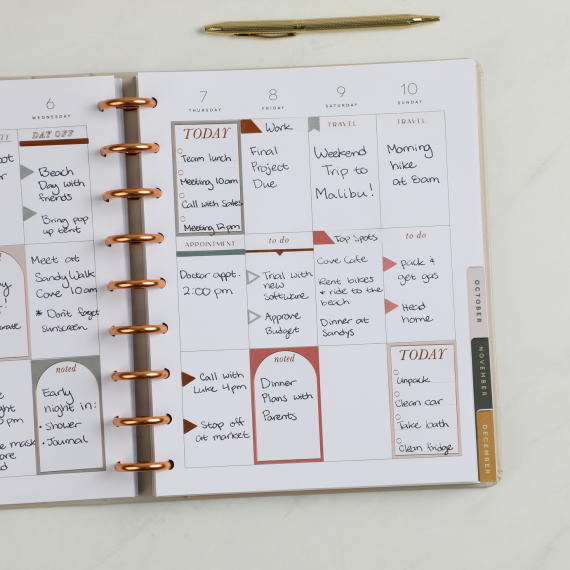 6
WEDNESDAY
DAY OFF
Beach
Day with
friends
Bring pop
up tent
Meet at
Sandy Walk
Cove 10am
* Don't forget
sunscreen
noted
Early
night in:
• Shower
• Journal
7
THURSDAY
TODAY
Team lunch
Meeting 10am
Call with Sales
Meeting 12pm
APPOINTMENT
Doctor appt.
2:00 pm
Call with
Luke 4pm
Stop off
at market
8
FRIDAY
Work
Final
Project
Due
to do
Trial with
new
Software
Approve
Budget
noted
Dinner
Plans with
Parents
9
SATURDAY
TRAVEL
Weekend
Trip to
Malibu!
Top Spots
Cove Cafe
Rent bikes
+ ride to the
beach
Dinner at
Sandys
10
SUNDAY
TRAVEL
Morning
hike
at 8am
to do
Pack &
get gas
Head
home
TODAY
Unpack
Clean car
Take bath
Clean fridge
OCTOBER
NOVEMBER
DECEMBER